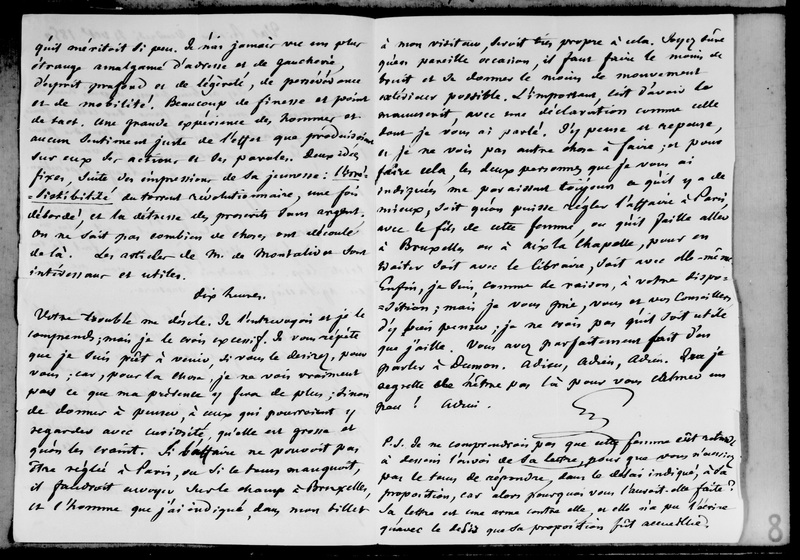 qu'il méritait si peu. Je n'ai jamais vu un plus
étrange amalgame d'adresse et de gaucherie,
d'esprit profond et de légèreté, de persévérance
et de mobilité. Beaucoup de finesse et point
de tact. Une grande expérience des hommes et
aucun sentiment juste de l'effet que produisaient
sur eux ses actions et ses paroles. Deux idées
fixes, suite des impressions de sa jeunesse : l'irré-
-sistibilité du torrent révolutionnaire, une fois
débordé, et la détresse des proscrits sans argent.
On ne sait pas combien de choses ont découlé
de là. Les articles de M. de Montalivet sont
intéressans et utiles.
dix heures.
Votre trouble me désole. Je l'entrevoyois et je le
comprends, mais je le crois excessif. Je vous répète
que je suis prêt à venir, si vous le desirez, pour
vous ; car, pour la chose, je ne vois vraiment
pas ce que ma présence y fera de plus ; sinon
de donner à penser, à ceux qui pourroient y
regarder avec curiosité, qu'elle est grosse et
qu'on les craint. Si l'affaire ne pouvoit pas
être réglée à Paris, ou si le tems manquoit,
il faudroit envoyer sur le champ à Bruxelles,
et l'homme que j'ai indiqué, dans mon billet
à mon visiteur, seroit très propre à cela. Soyez sûre
qu'en pareille occasion, il faut faire le moins de
bruit et se donner le moins de mouvement
extérieur possible. L'important, c'est d'avoir le
manuscrit, avec une déclaration comme celle
dont je vous ai parlé. J'y pense et repense,
et je ne vois pas autre chose à faire ; et pour
faire cela, les deux personnes que je vous ai
indiquées me paraissent toujours ce qu'il y a de
mieux, soit qu'on puisse régler l'affaire à Paris,
avec le fils de cette femme, ou qu'il faille aller
à Bruxelles ou à Aix la Chapelle, pour en
traiter soit avec le libraire, soit avec elle-même.
Enfin, je suis, comme de raison, à votre dispo-
-sition ; mais je vous prie, vous et vos conseillers,
d'y bien penser ; je ne crois pas qu'il soit utile
que j'aille. Vous avez parfaitement fait d'en
parler à Dumon. Adieu, Adieu, Adieu. Que je
regrette de n'être pas là pour vous calmer un
peu ! Adieu.
P.S. Je ne comprendrais pas que cette femme eût retardé
à dessein l'envoi de sa lettre, pour que vous n'eussiez
pas le tems de répondre, dans le délai indiqué, à sa
proposition, car alors pourquoi vous l'auroit-elle faite ?
Sa lettre est une arme contre elle, et elle n'a pu l'écrire
qu'avec le desir que sa proposition fût accueillie.
8